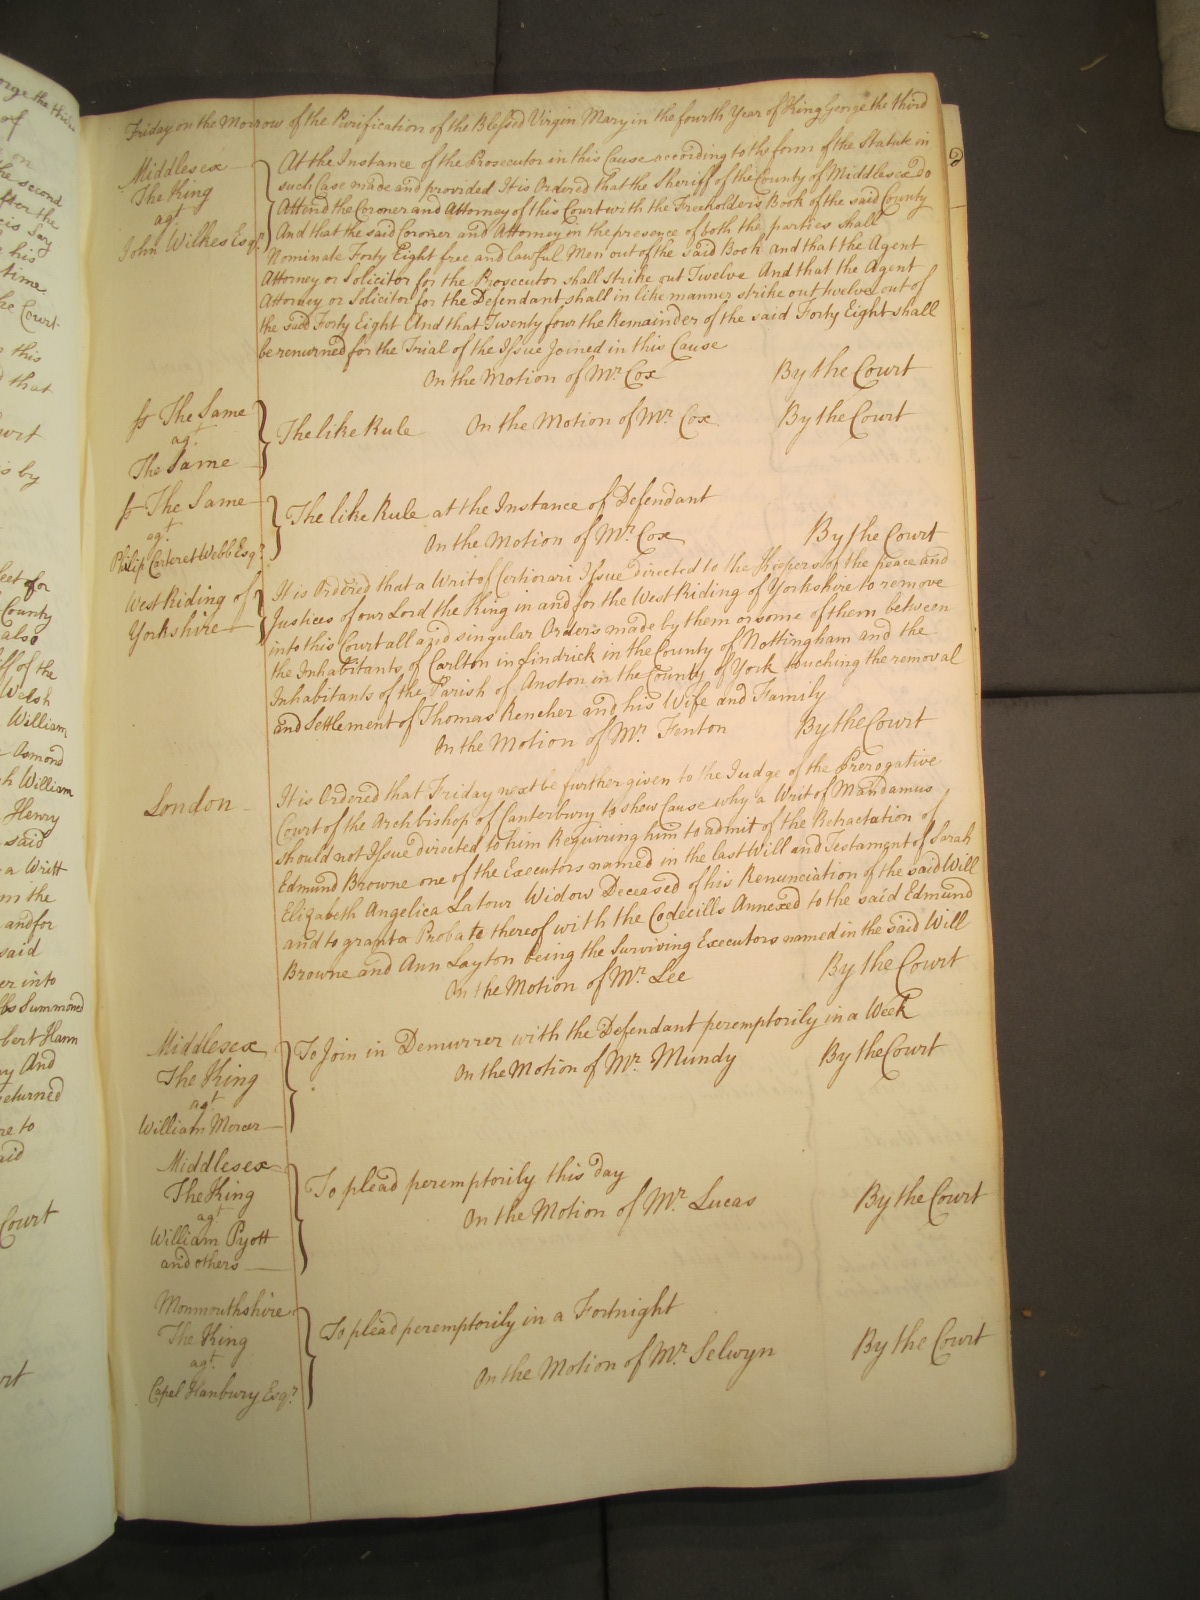 Friday on the Morrow of the Purification of the Blessed Virgin Mary in the fourth Year of King George the third
Middlesex
The King
agt
John Wilkes Esqr.
At the Instance of the Prosecutor in this Cause according to the form of the Statute in
such Case made and provided It is Ordered that the Sheriff of the County of Middlesex do
Attend the Coroner and Attorney of this Court with the Freeholders Book of the said County
And that the said Coroner and Attorney in the presence of both the parties shall
Nominate Forty Eight free and lawful Men out of the said Book and that the Agent
Attorney or Solicitor for the Prosecutor shall strike out Twelve And that the Agent
Attorney or Solicitor for the Defendant shall in like manner strike out twelve out of
the said Forty Eight And that Twenty four the Remainder of the said Forty Eight shall
be renurned for the Trial of the Issue Joined in this Cause
On the Motion of Mr. Cox By the Court
The Same
agt
The Same
The like Rule On the Motion of Mr. Cox By the Court
The Same
agt
Philip Carteret Webb Esqr.
The like Rule at the Instance of Defendant
On the Motion of Mr. Cox By the Court
West Riding of
Yorkshire
It is Ordered that a Writ of Certiorari Issue directed to the Keepers of the peace and
Justices of our Lord the King in and for the West Riding of Yorkshire to remove
into this Court all and singular Orders made by them or some of them between
the Inhabitants of Carlton in Lindrick in the County of Nottingham and the
Inhabitants of the Parish of Anston in the County of York touching the removal
and Settlement of Thomas Rencher and his Wife and Family
On the Motion of Mr. Fenton By the Court
London
It is Ordered that Friday next be further given to the Judge of the Prerogative
Court of the Archbishop of Canterbury to shew Cause why a Writ of Mandamus
should not Issue directed to him Requiring him to admit of the Retractation of
Edmund Browne one of the Executors named in the last Will and Testament of Sarah
Elizabeth Angelica Latour Widow Deceased of his Renunciation of the said Will
and to grant a Probate thereof with the Codecills Annexed to the said Edmund
Browne and Ann Layton being the Surviving Executors named in the said Will
On the Motion of Mr. Lee By the Court
Middlesex
The King
agt
William Mercer
To Join in Demurrer with the Defendant peremptorily in a Week
On the Motion of Mr. Mundy By the Court
Middlesex
The King
agt
William Pyott
and others
To plead peremptorily this day
On the Motion of Mr. Lucas By the Court
Monmouthshire
The King
agt.
Capel Hanbury Esqr.
To plead peremptorily in a Fortnight
On the Motion of Mr. Selwyn By the Court